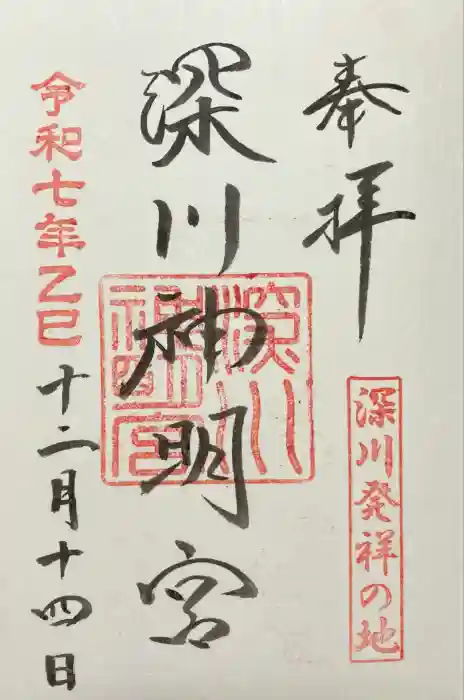 奉拝
深川発祥の地
深川神明宮
深川神明宮
令和七年乙巳
十二月十四日